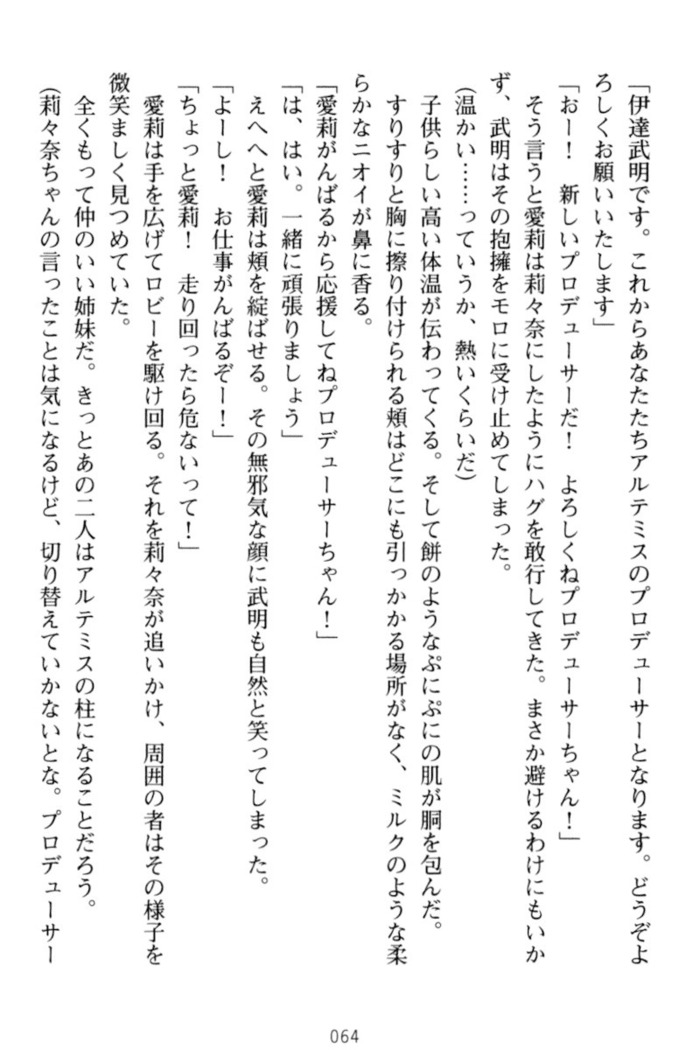 「伊達武明です。これからあなたたちアルテミスのプロデューサーとなります。どうぞよ
ろしくお願いいたします」
「おー！　新しいプロデューサーだ！　よろしくねプロデューサーちゃん！」
　そう言うと愛莉は莉々奈にしたようにハグを敢行してきた。まさか避けるわけにもいか
ず、武明はその抱擁をモロに受け止めてしまった。
（温かい……っていうか、熱いくらいだ）
　子供らしい高い体温が伝わってくる。そして餅のようなぷにぷにの肌が胴を包んだ。
　すりすりと胸に擦り付けられる頬はどこにも引っかかる場所がなく、ミルクのような柔
らかなニオイが鼻に香る。
「愛莉がんばるから応援してねプロデューサーちゃん！」
「は、はい。一緒に頑張りましょう」
　えへへと愛莉は頬を綻ばせる。その無邪気な顔に武明も自然と笑ってしまった。
「よーし！　お仕事がんばるぞー！」
「ちょっと愛莉！　走り回ったら危ないって！」
　愛莉は手を広げてロビーを駆け回る。それを莉々奈が追いかけ、周囲の者はその様子を
微笑ましく見つめていた。
　全くもって仲のいい姉妹だ。きっとあの二人はアルテミスの柱になることだろう。
（莉々奈ちゃんの言ったことは気になるけど、切り替えていかないとな。プロデューサー
064